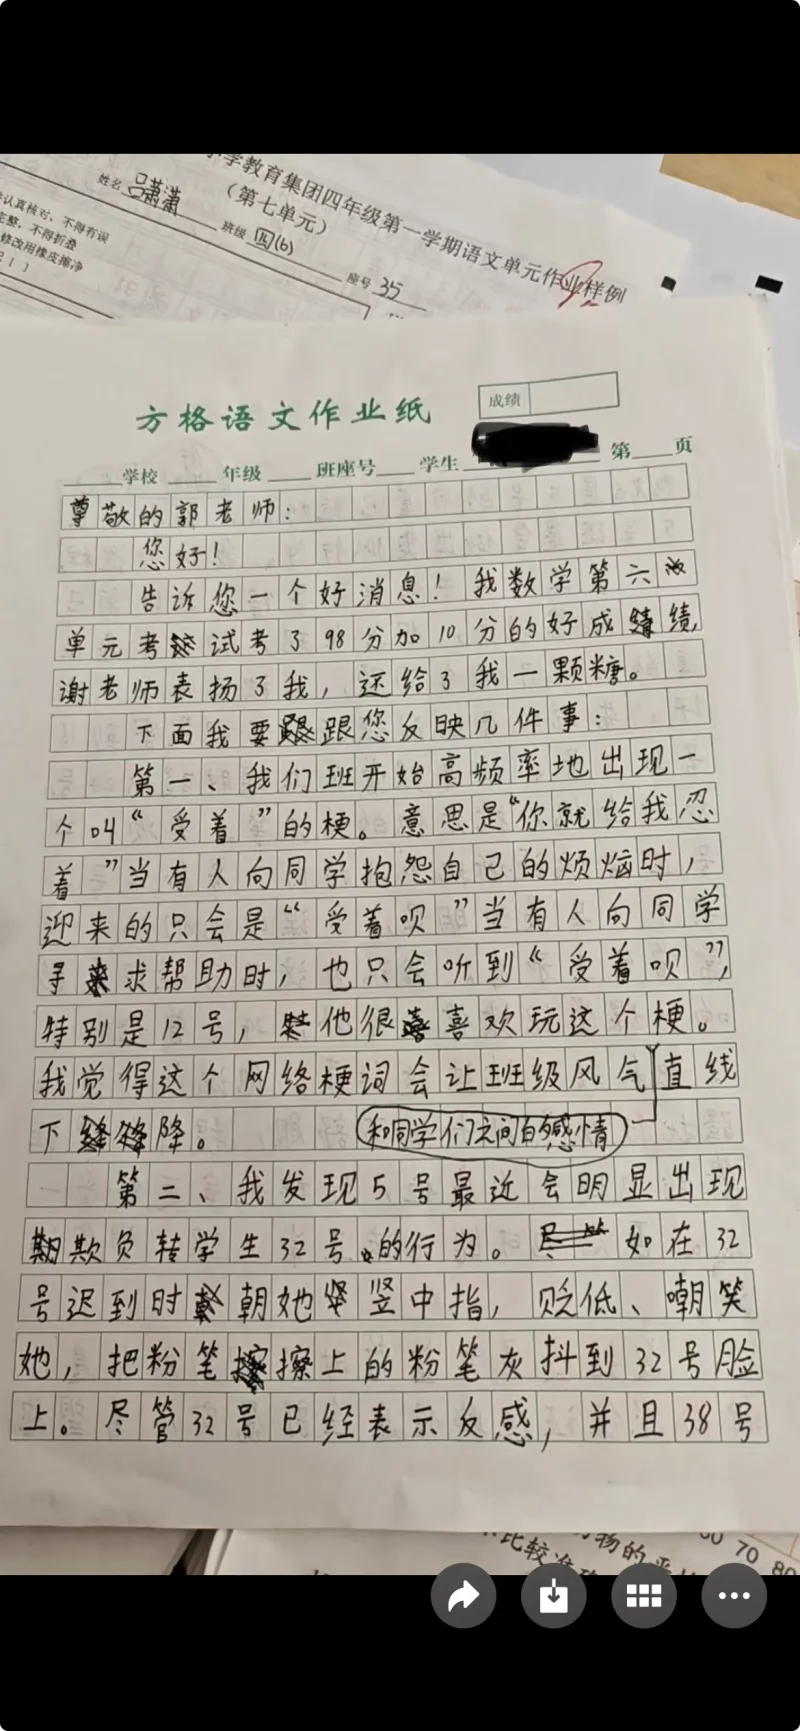 小学教育集团四年级第一学期语文单元作业样例
（第七单元）
姓名 吕潇潇 班级 四(6) 座号 35
认真核对，不得有误
完整，不得折叠
修改用橡皮擦净
方格语文作业纸
成绩
学校 年级 班座号 学生 第 页
尊敬的郭老师：
您好！
告诉您一个好消息！我数学第六
单元考试考了98分加10分的好成绩，
谢老师表扬了我，还给了我一颗糖。
下面我要跟您反映几件事：
第一、我们班开始高频率地出现一
个叫“受着”的梗。意思是“你就给我忍
着”当有人向同学抱怨自己的烦恼时，
迎来的只会是“受着呗”当有人向同学
寻求帮助时，也只会听到“受着呗”，
特别是12号，他很喜欢玩这个梗。
我觉得这个网络梗词会让班级风气和同学们之间的感情直线
下降。
第二、我发现5号最近会明显出现
欺负转学生32号的行为。如在32
号迟到时朝她竖中指，贬低、嘲笑
她，把粉笔擦上的粉笔灰抖到32号脸
上。尽管32号已经表示反感，并且38号
比较准
物的
60 70 80